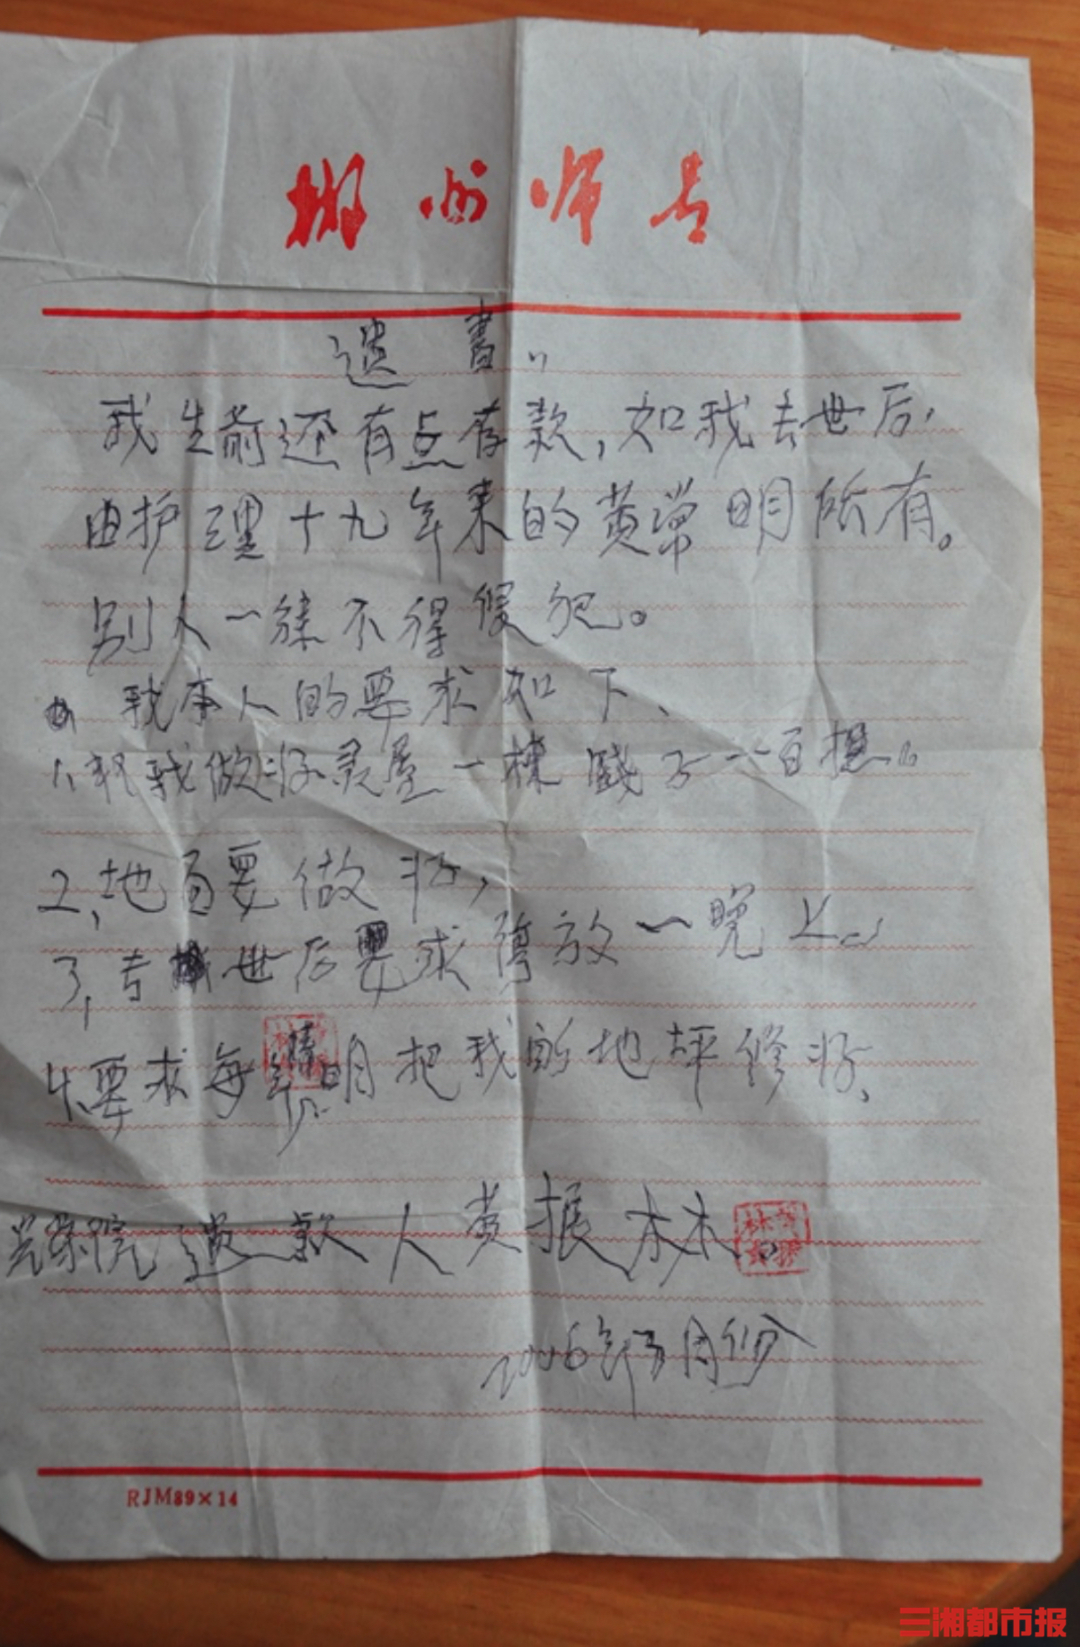 郴州师专
遗書
我生前还有点存款,如我去世后,
由护理十九年来的黄常明所有。
别人一律不得侵犯。
我本人的要求如下、
1、把我做好灵屋一栋 钱子一百担。
2、地面要做好,
3、去世后要求停放一晚上。
4、要求每年清明把我的地坪修好、
光荣院 遗款人黄振林
2006年 月份
RJM89×14
三湘都市报